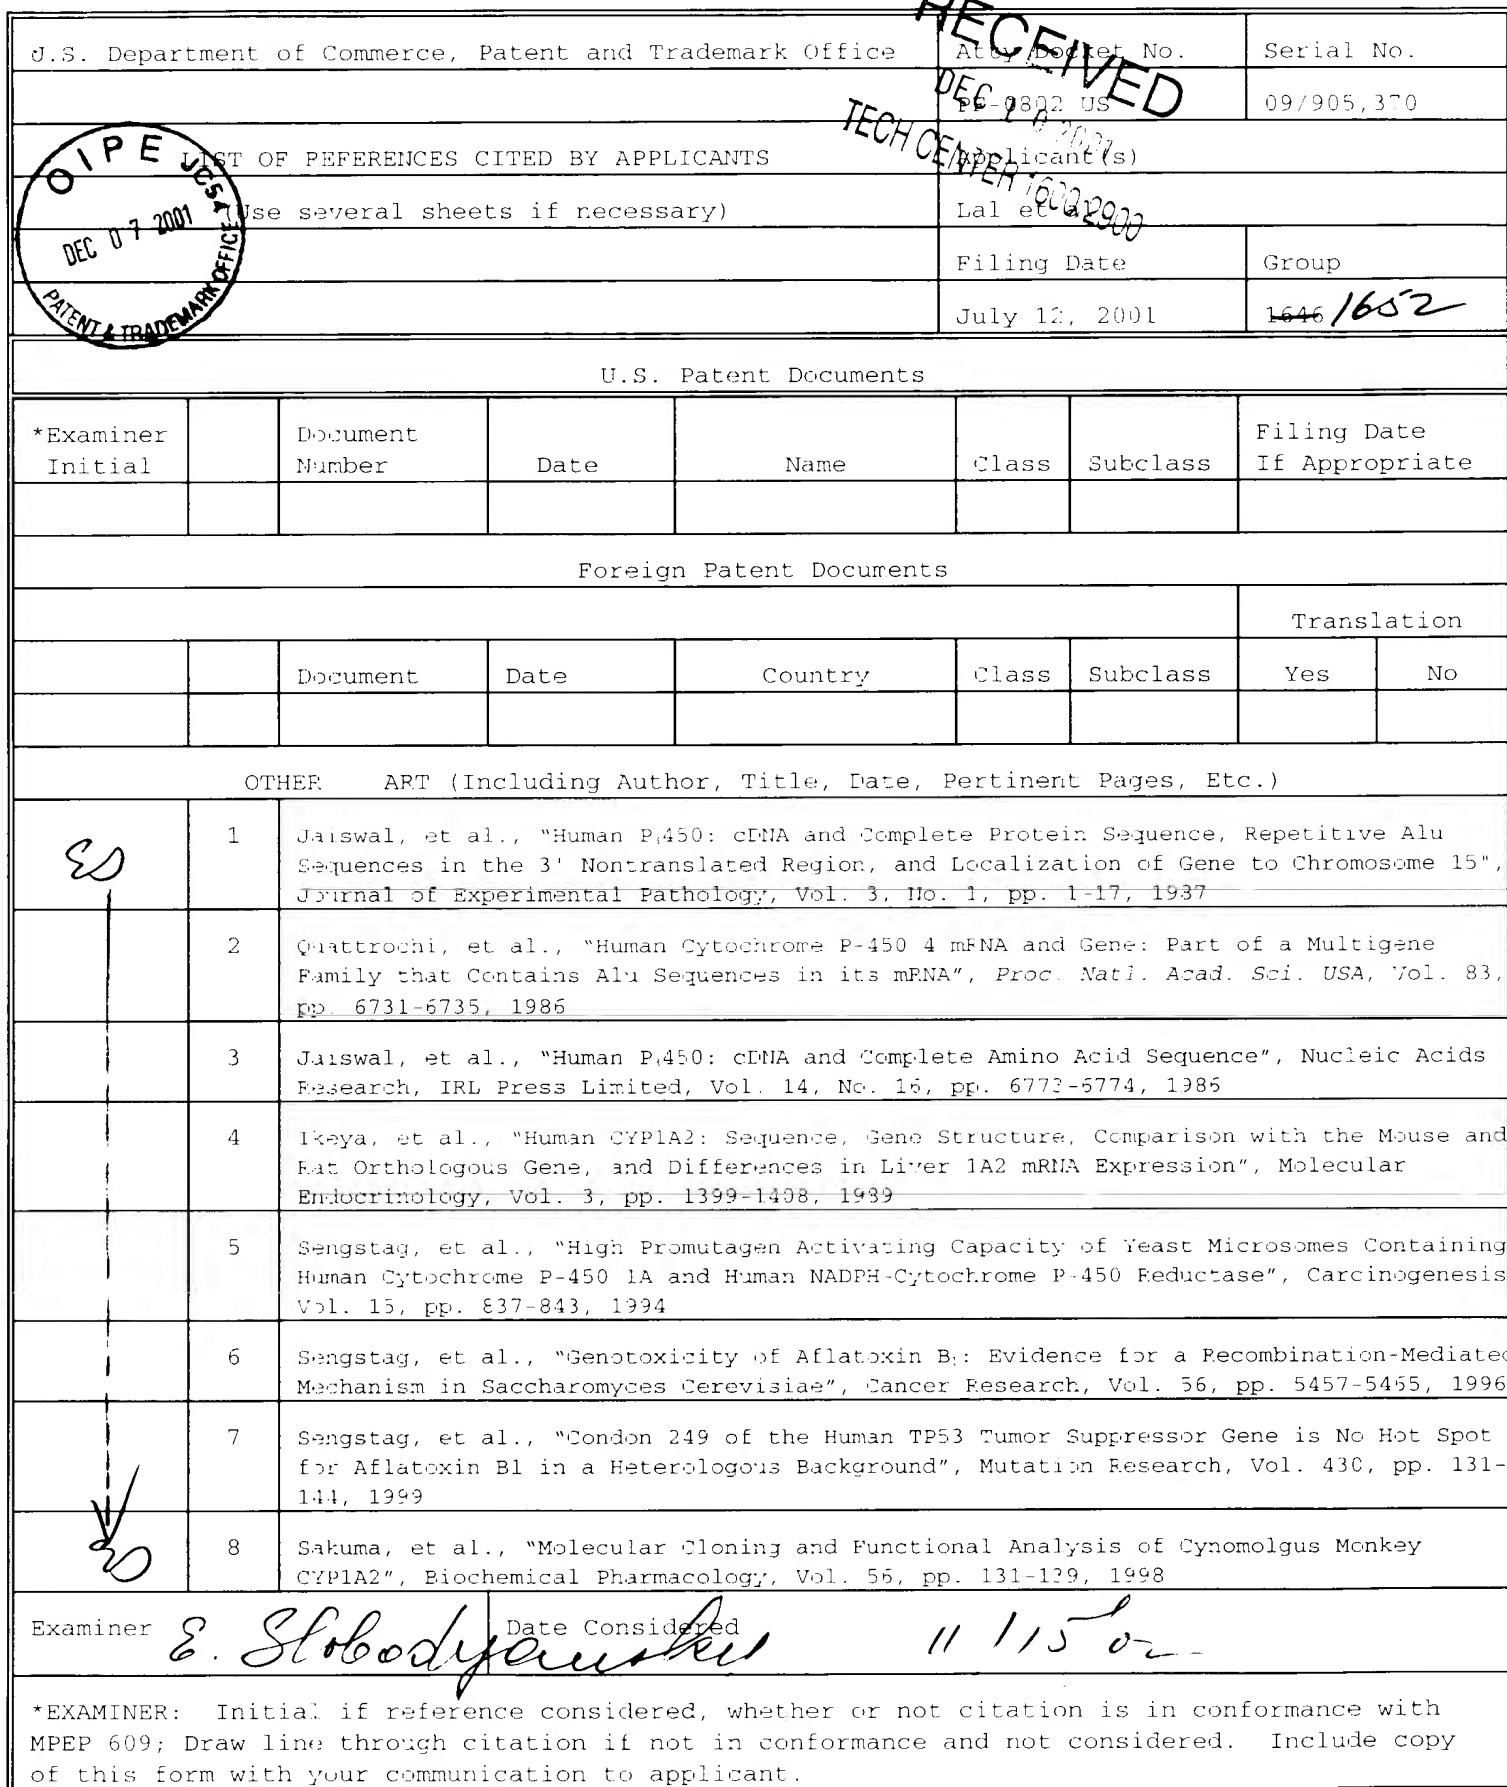 RECEIVED
U.S. Department of Commerce, Patent and Trademark Office
Atty Docket No.
Serial No.
DEC 2001
PF-0802 US
09/905,370
TECH CENTER 1600/2900
OIPE JC54
DEC 07 2001
PATENT & TRADEMARK OFFICE
LIST OF REFERENCES CITED BY APPLICANTS
Applicant(s)
(Use several sheets if necessary)
Lal et al.
Filing Date
Group
July 12, 2001
1646 1652
U.S. Patent Documents
*Examiner Initial
Document Number
Date
Name
Class
Subclass
Filing Date If Appropriate
Foreign Patent Documents
Translation
Document
Date
Country
Class
Subclass
Yes
No
OTHER ART (Including Author, Title, Date, Pertinent Pages, Etc.)
ES
1
Jaiswal, et al., "Human P₃450: cDNA and Complete Protein Sequence, Repetitive Alu
Sequences in the 3' Nontranslated Region, and Localization of Gene to Chromosome 15",
Journal of Experimental Pathology, Vol. 3, No. 1, pp. 1-17, 1987
2
Quattrochi, et al., "Human Cytochrome P-450 4 mRNA and Gene: Part of a Multigene
Family that Contains Alu Sequences in its mRNA", Proc. Natl. Acad. Sci. USA, Vol. 83,
pp. 6731-6735, 1986
3
Jaiswal, et al., "Human P₃450: cDNA and Complete Amino Acid Sequence", Nucleic Acids
Research, IRL Press Limited, Vol. 14, No. 16, pp. 6773-6774, 1986
4
Ikeya, et al., "Human CYP1A2: Sequence, Gene Structure, Comparison with the Mouse and
Rat Orthologous Gene, and Differences in Liver 1A2 mRNA Expression", Molecular
Endocrinology, Vol. 3, pp. 1399-1408, 1989
5
Sengstag, et al., "High Promutagen Activating Capacity of Yeast Microsomes Containing
Human Cytochrome P-450 1A and Human NADPH-Cytochrome P-450 Reductase", Carcinogenesis
Vol. 15, pp. 837-843, 1994
6
Sengstag, et al., "Genotoxicity of Aflatoxin B₁: Evidence for a Recombination-Mediated
Mechanism in Saccharomyces Cerevisiae", Cancer Research, Vol. 56, pp. 5457-5465, 1996
7
Sengstag, et al., "Condon 249 of the Human TP53 Tumor Suppressor Gene is No Hot Spot
for Aflatoxin B1 in a Heterologous Background", Mutation Research, Vol. 430, pp. 131-
144, 1999
ES
8
Sakuma, et al., "Molecular Cloning and Functional Analysis of Cynomolgus Monkey
CYP1A2", Biochemical Pharmacology, Vol. 56, pp. 131-139, 1998
Examiner E. Slobodyansky
Date Considered 11/15/02
*EXAMINER: Initial if reference considered, whether or not citation is in conformance with
MPEP 609; Draw line through citation if not in conformance and not considered. Include copy
of this form with your communication to applicant.